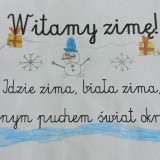 Witamy zimę!
Idzie zima, biała zima,
nym puchem świat okr